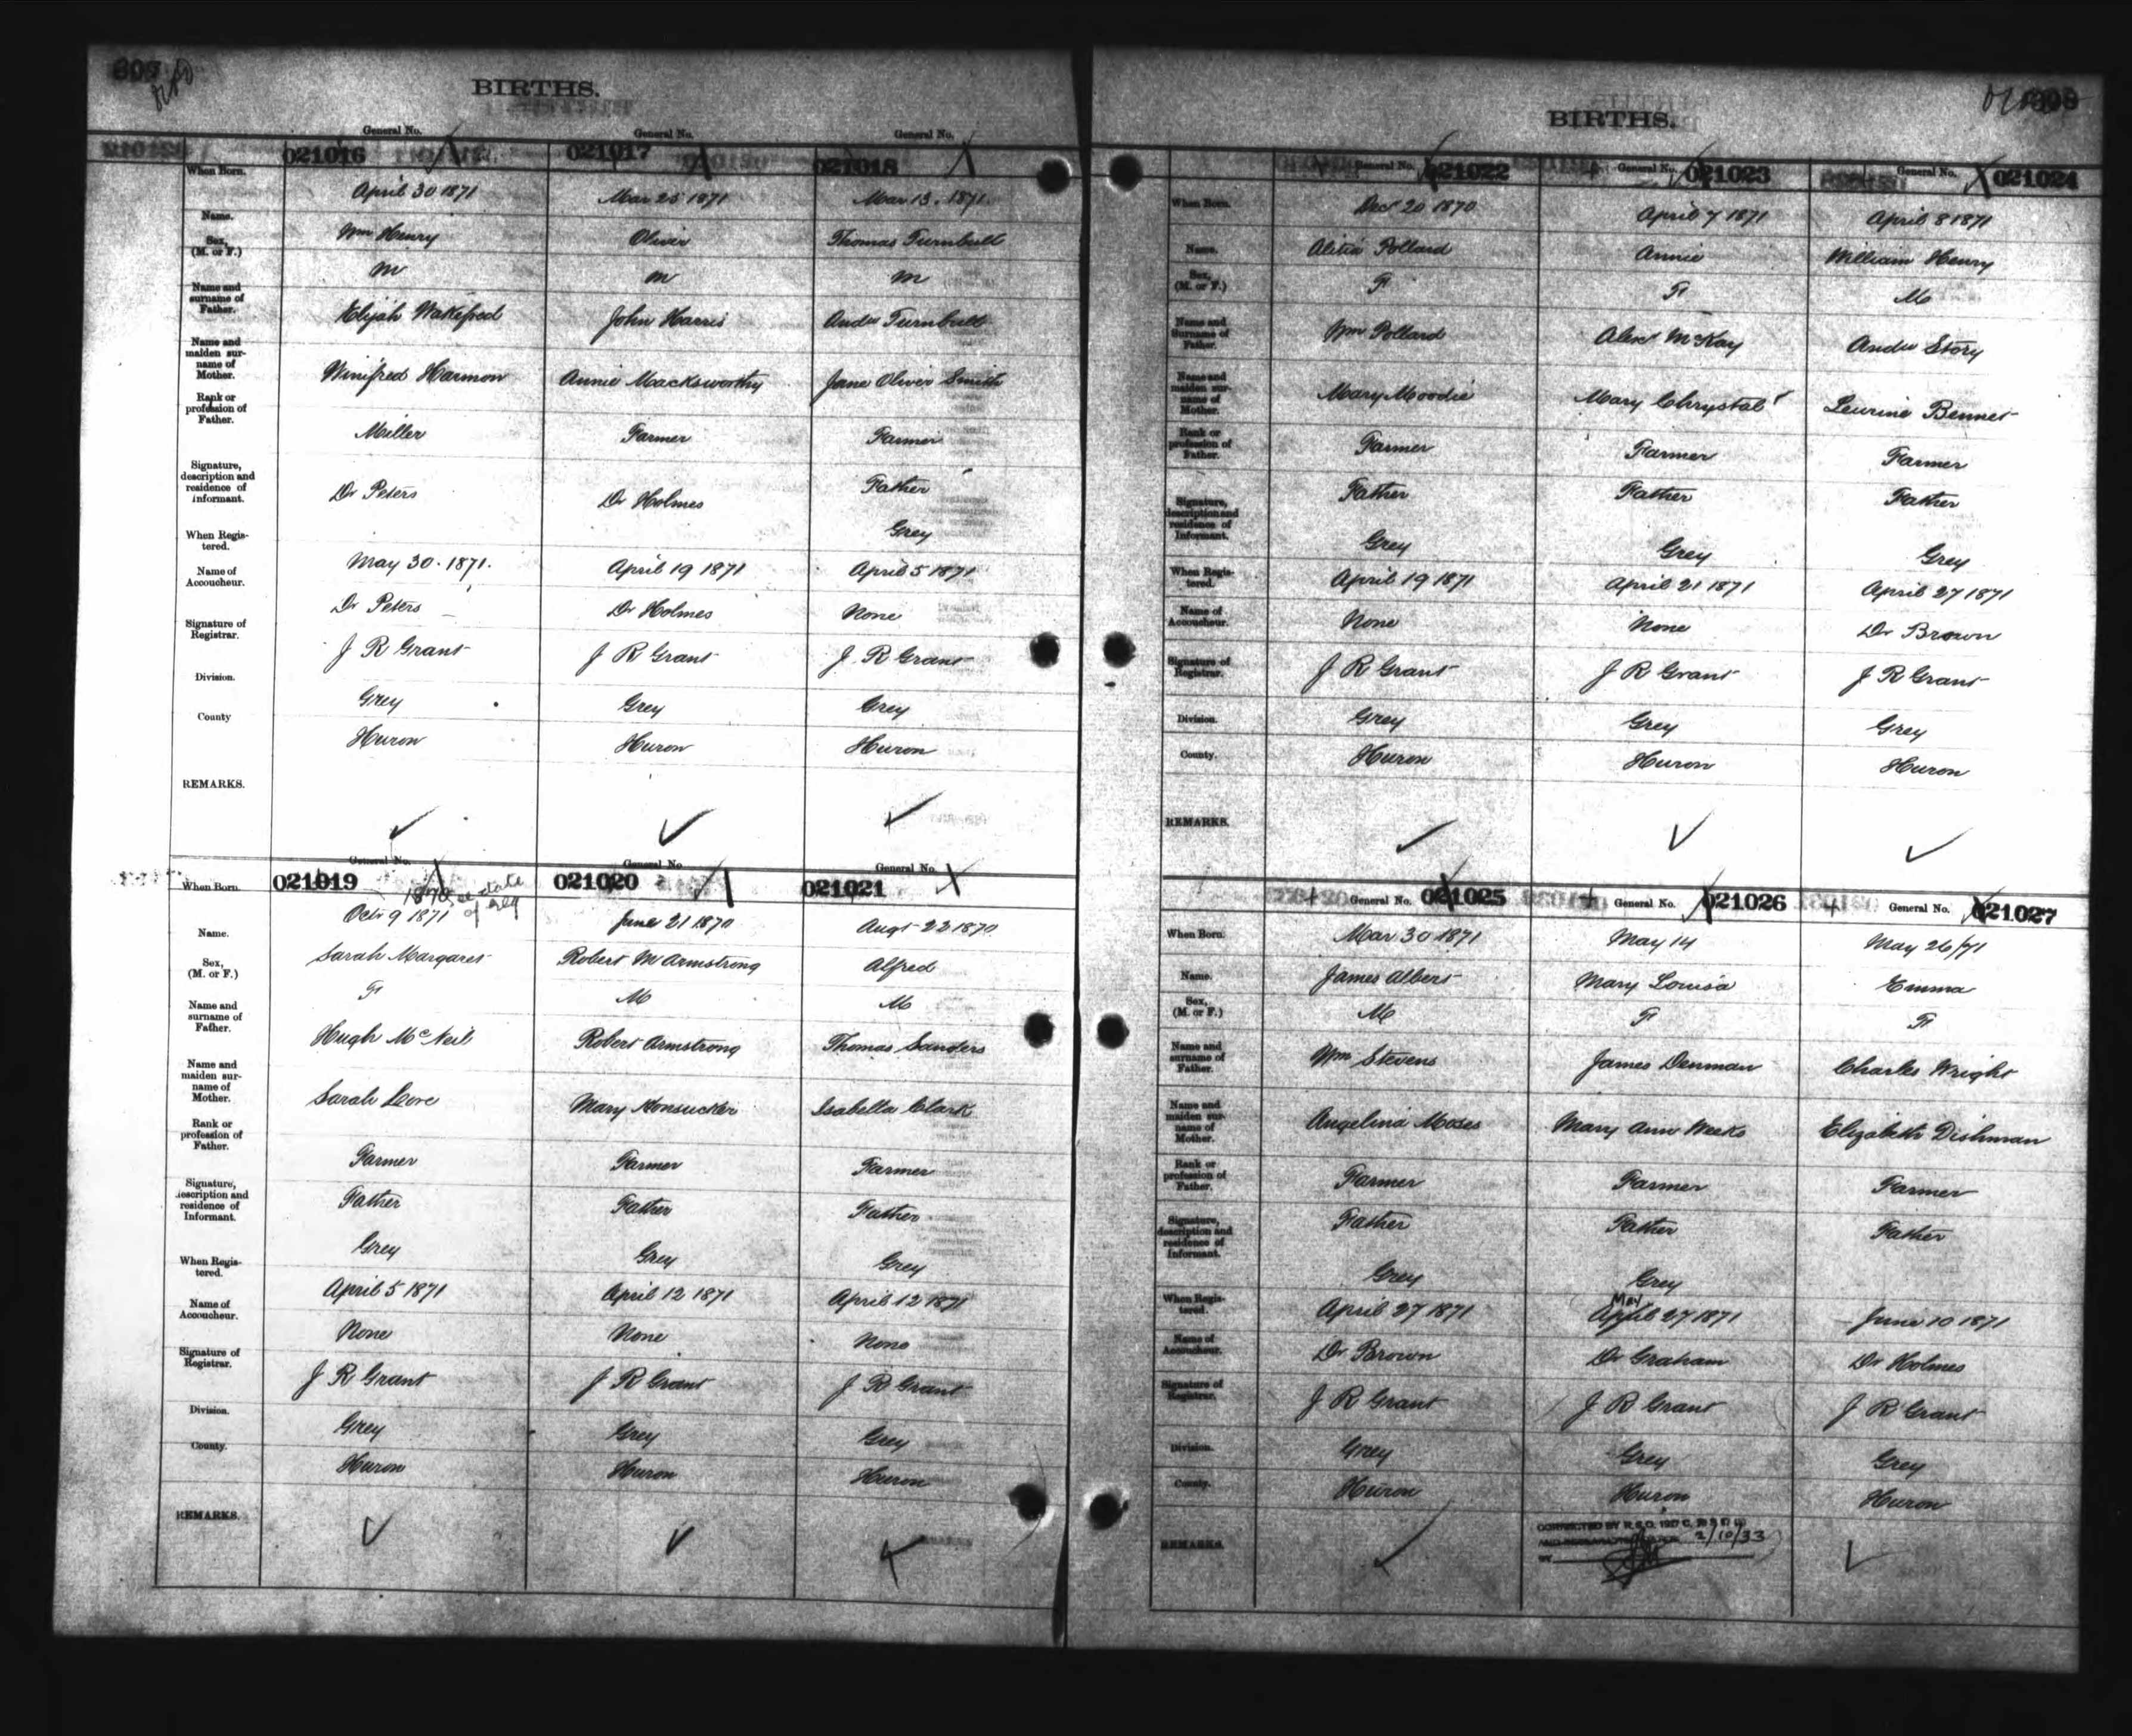 BIRTHS.
General No. General No. General No.
021016 021017 021018
When Born. April 30 1871 Mar 25 1871 Mar 13. 1871
Name. Wm Henry Oliver Thomas Turnbull
Sex, (M. or F.) M M M
Name and surname of Father. Elijah Wakefred John Harris Andw Turnbull
Name and maiden surname of Mother. Winifred Harmon Annie Macksworthy Jane Oliver Smith
Rank or profession of Father. Miller Farmer Farmer
Signature, description and residence of informant. Dr Peters Dr Holmes Father
Grey
When Registered. May 30. 1871. April 19 1871 April 5 1871
Name of Accoucheur. Dr Peters Dr Holmes None
Signature of Registrar. J R Grant J R Grant J. R Grant
Division. Grey Grey Grey
County Huron Huron Huron
REMARKS.
General No. General No. General No.
021019 021020 021021
1870 see date of reg
When Born. Octr 9 1871 June 21 1870 Augt 22 1870
Name. Sarah Margaret Robert M Armstrong Alfred
Sex, (M. or F.) F M M
Name and surname of Father. Hugh McNeil Robert Armstrong Thomas Sanders
Name and maiden surname of Mother. Sarah Love Mary Isabella Clark
Rank or profession of Father. Farmer Farmer Farmer
Signature, description and residence of Informant. Father Father Father
Grey Grey Grey
When Registered. April 5 1871 April 12 1871 April 12 1871
Name of Accoucheur. None None None
Signature of Registrar. J R Grant J R Grant J R Grant
Division. Grey Grey Grey
County. Huron Huron Huron
REMARKS.
BIRTHS.
General No. 021022 General No. 021023 General No. 021024
When Born. Decr 20 1870 April 7 1871 April 8 1871
Name. Alitia Pollard Annie William Henry
Sex, (M. or F.) F F M
Name and Surname of Father. Wm Pollard Alexr McKay Andw Story
Name and maiden surname of Mother. Mary Moodie Mary Chrystal Leurine Bennet
Rank or profession of Father. Farmer Farmer Farmer
Signature, description and residence of Informant. Father Father Father
Grey Grey Grey
When Registered. April 19 1871 April 21 1871 April 27 1871
Name of Accoucheur. None None Dr Brown
Signature of Registrar. J R Grant J R Grant J R Grant
Division. Grey Grey Grey
County. Huron Huron Huron
REMARKS.
General No. 021025 General No. 021026 General No. 021027
When Born. Mar 30 1871 May 14 May 26/71
Name. James Albert Mary Louisa Emma
Sex, (M. or F.) M F F
Name and surname of Father. Wm Stevens James Denman Charles Wright
Name and maiden surname of Mother. Angelina Moses Mary Ann Meeks Elizabeth Dishman
Rank or profession of Father. Farmer Farmer Farmer
Signature, description and residence of Informant. Father Father Father
Grey Grey
May
When Registered. April 27 1871 April 27 1871 June 10 1871
Name of Accoucheur. Dr Brown Dr Graham Dr Holmes
Signature of Registrar. J R Grant J R Grant J R Grant
Division. Grey Grey Grey
County. Huron Huron Huron
CORRECTED BY R.S.O. 1927 C.
2/10/33
BY
REMARKS.